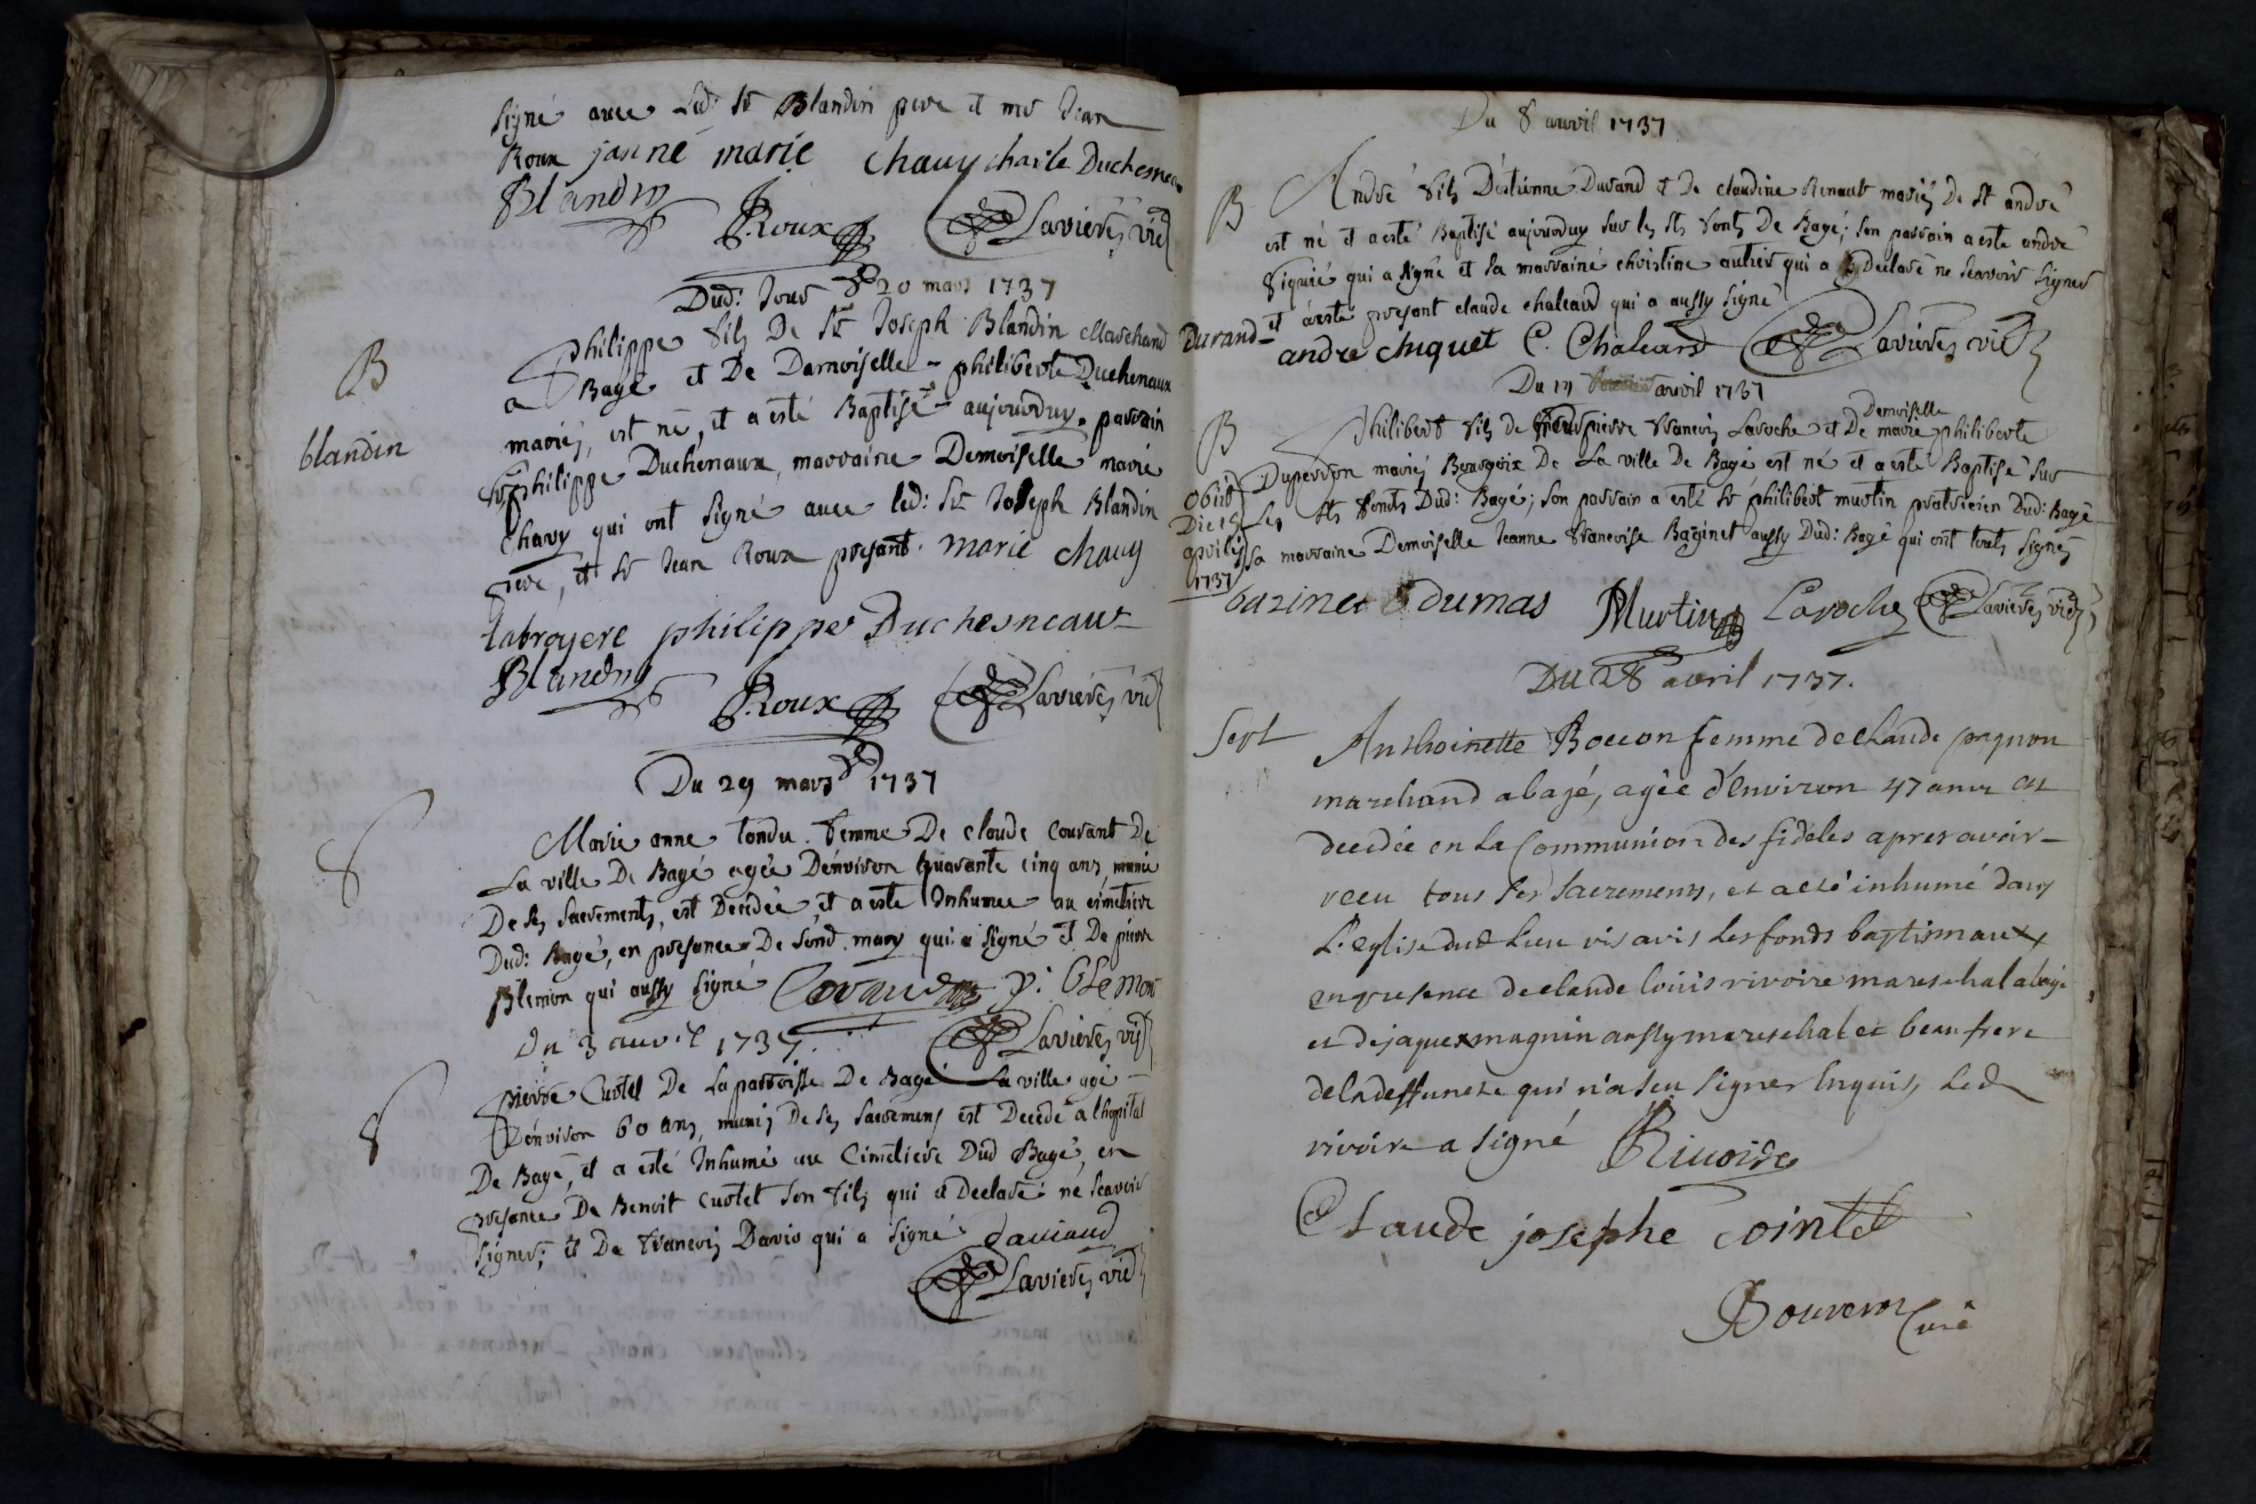 signé avec Led: Sr Blandin pere et mre Jean
Roux janne marie chauy charle Duchesneau
Blandin
Roux Lavieres vic
Dud: Jour 20 mars 1737
B
blandin
philippe fils De Sr Joseph Blandin Marchand
a Bagé et De Damoiselle philiberte Duchenaux
mariés, est né, et a esté Baptisé aujourduy. parrain
Sr philippe Duchenaux, marraine Demoiselle marie
Chavy qui ont signé avec led: Sr Joseph Blandin
pere, et Sr Jean Roux presant. marie chauy
labroyere philippe Duchesneaux
Blandin
Roux Lavieres vic
Du 29 mars 1737
S
Marie anne tondu femme De claude Courant De
La ville De Bagé agée D'environ Quarante cinq ans, munie
De ses sacrements, est Decedée, et a esté Inhumée au cimetiere
Dud: Bagé, en presance De Lond. mary qui a signé et De pierre
Blemon qui aussy signé p: blemon
du 3 avril 1737 Lavieres vic
S
pierre Curtel De La parroisse De Bagé La ville agé
D'environ 60 ans, muni De ses sacremens est Decedé a lhopital
De Bagé, et a esté Inhumé au Cimetiere Dud Bagé, en
presance De Benoit Curtet son fils qui a Declaré ne scavoir
signer; et De francois Davio qui a signé daviaud
Lavieres vic
Du 8 avvril 1737
B
Durand
André fils D'estienne Durand et De claudine Renault mariés De St andré
est né et a esté Baptisé aujourduy sur les sts fonts De Bagé; son parrain a esté andré
Siquié qui a signé et sa marraine christine autier qui a Declaré ne scavoir signer
et a esté presant claude chaleard qui a aussy signé
andre chiquet C. Chaleard Lavieres vic
Du 11 avvril 1737
B
obiit
Die 15
aprilis
1737
Philibert fils de pierre francois Laroche et De Demoiselle marie philiberte
Duperdon mariés Bourgeoix De La ville De Bagé est né et a esté Baptisé sur
Les sts fonts Dud: Bagé; son parrain a esté Sr philibert murtin praticien Dud: Bagé
sa marraine Demoiselle Jeanne francoise Baginet aussy Dud: Bagé qui ont touts signés
bazinet dumas Murtin Laroche Lavieres vic
Du 28 avril 1737.
Sept
Anthoinette Boccon femme de Claude pagnon
marchand a bagé, agée d'Environ 47 ans est
decedée en La Communion des fideles apres avoir
receu tous ses sacrements, et a eté inhumé dans
L'eglise dud Lieu vis avis Les fonds baptismaux,
en presence de claude louis rivoire mareschal a bagé
et de jaques magnin aussy mareschal et beaufrere
de la deffuncte qui n'a sceu signer Enquis, Led
rivoire a signé Rivoire
Claude josephe cointet
Bouveron Curé